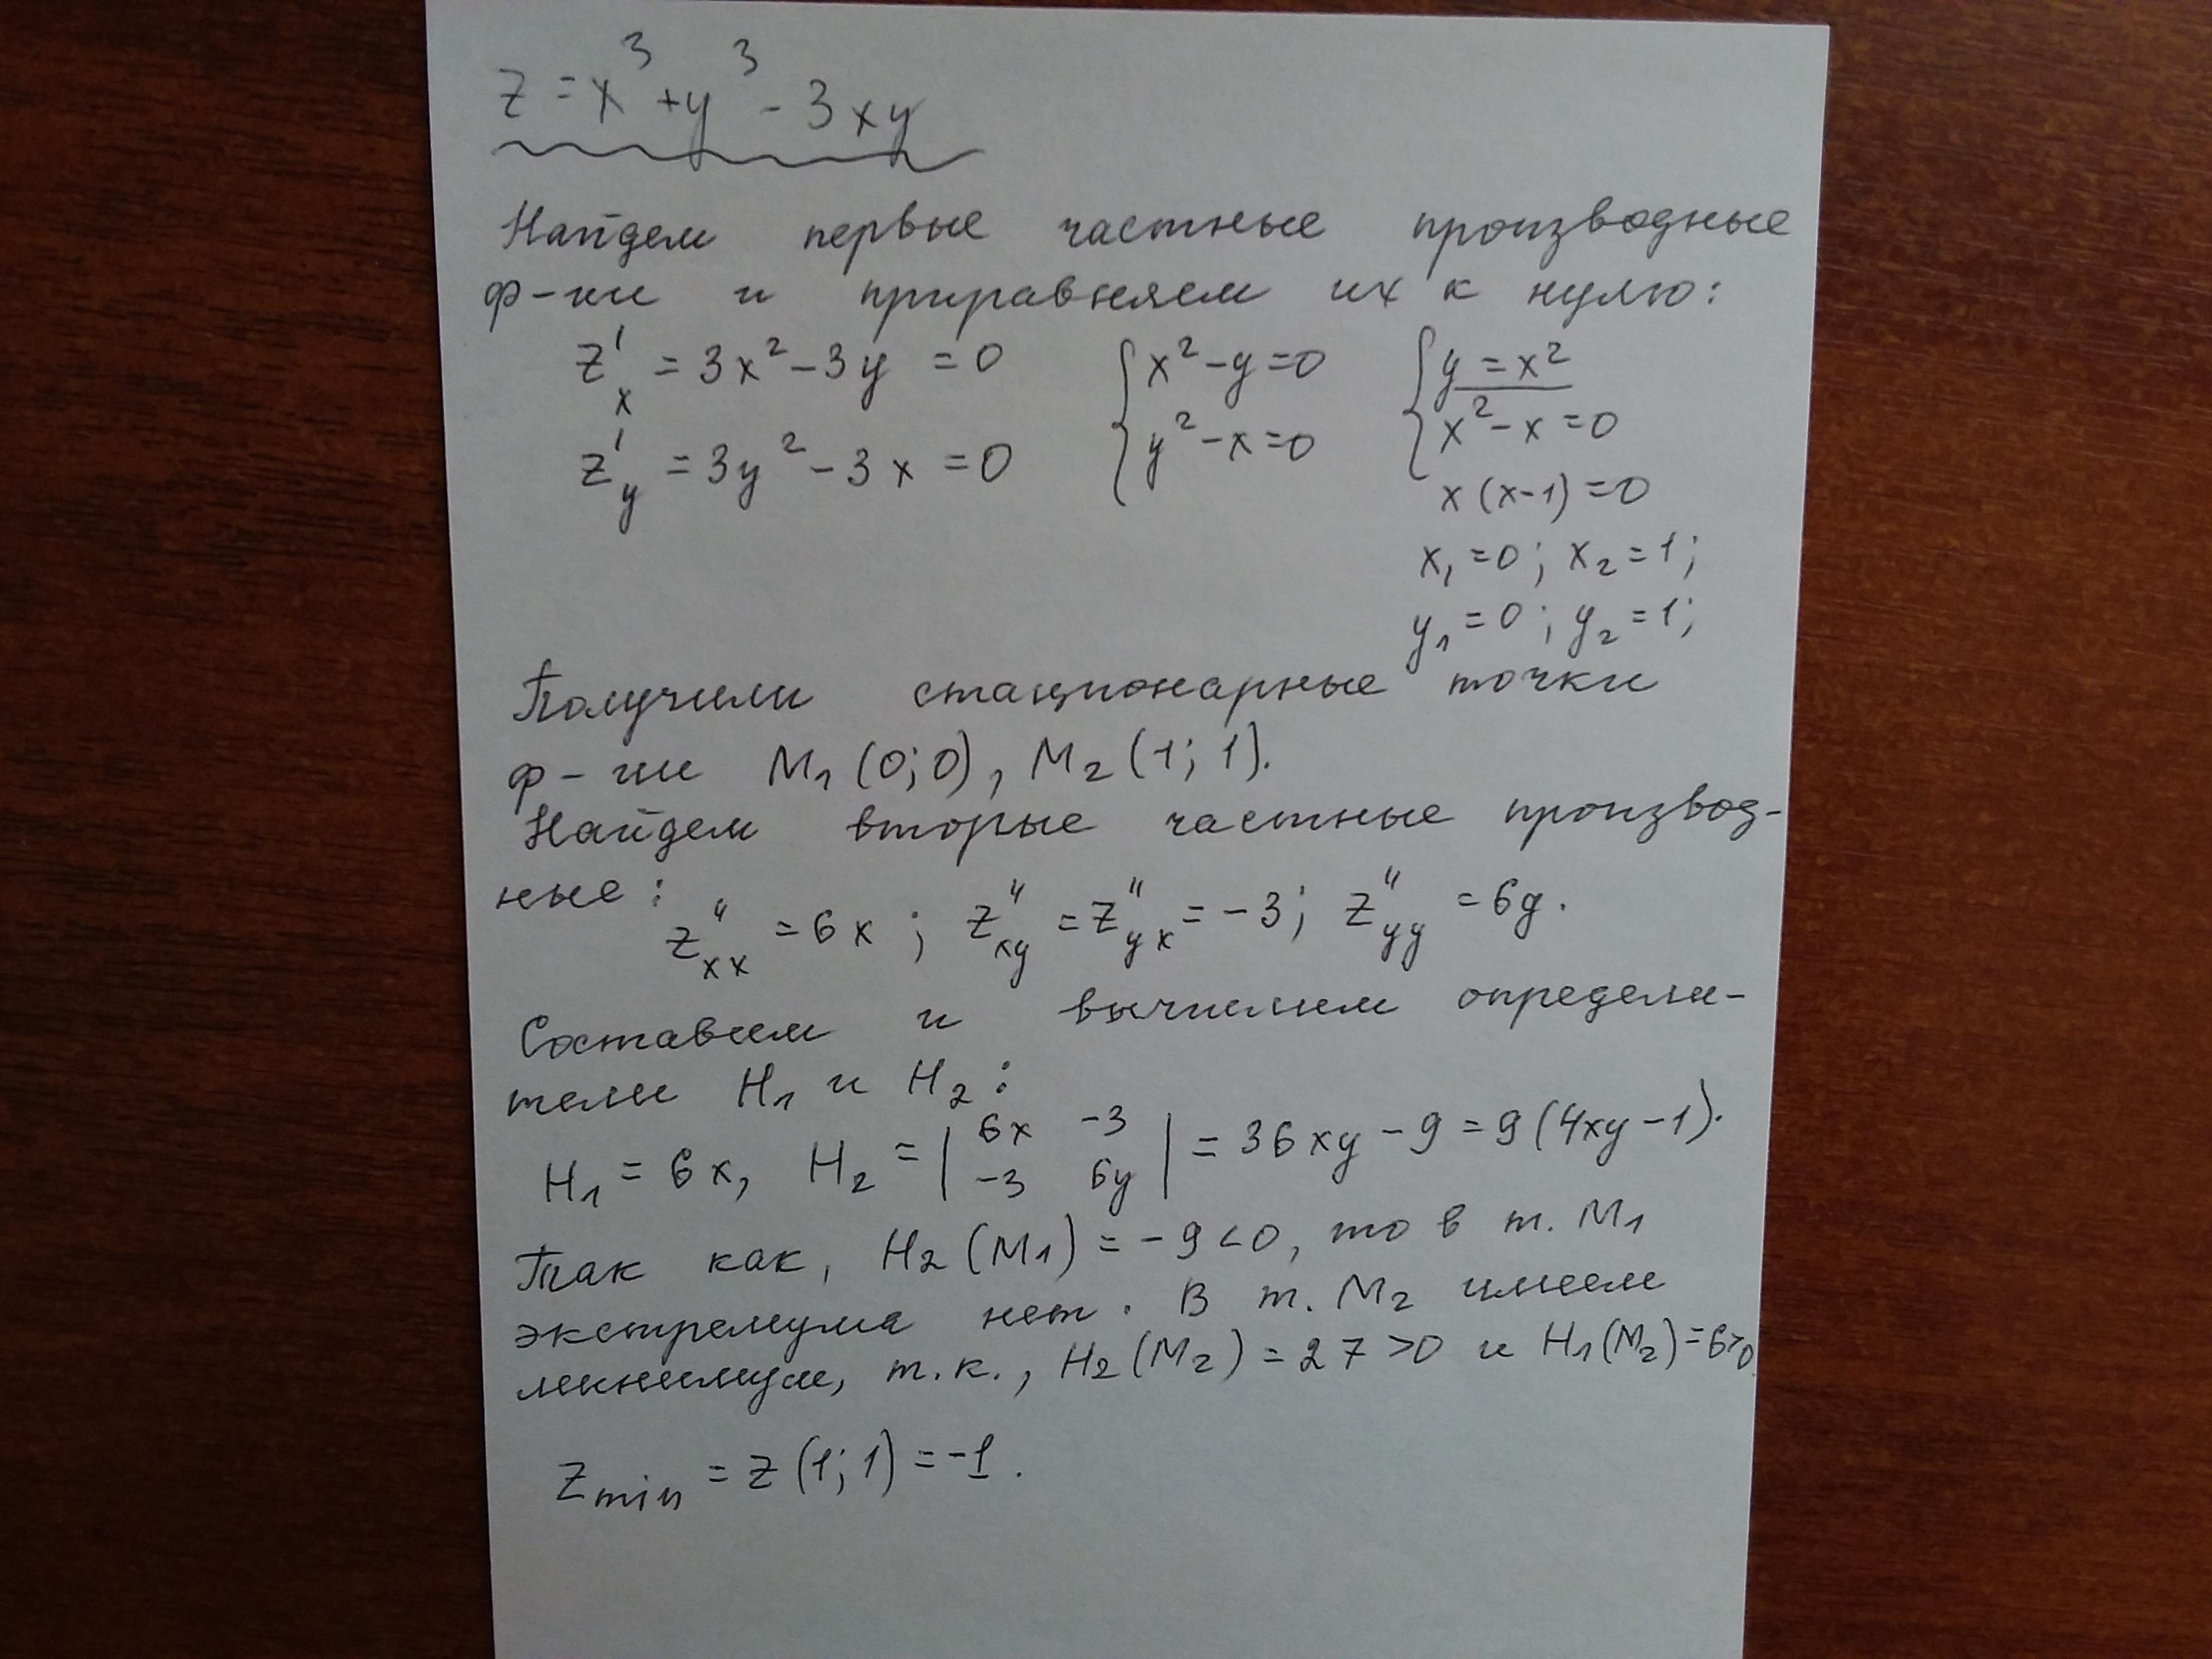 z = x³ + y³ - 3xy
Найдем первые частные производные
ф-ии и приравняем их к нулю:
z'ₓ = 3x² - 3y = 0 { x² - y = 0 { y = x²
z'_y = 3y² - 3x = 0 y² - x = 0 x² - x = 0
x(x-1) = 0
x₁ = 0; x₂ = 1;
y₁ = 0; y₂ = 1;
Получили стационарные точки
ф-ии M₁(0; 0), M₂(1; 1).
Найдем вторые частные производ-
ные:
z''_xx = 6x; z''_xy = z''_yx = -3; z''_yy = 6y.
Составим и вычислим определи-
тели H₁ и H₂:
H₁ = 6x, H₂ = | 6x -3 | = 36xy - 9 = 9(4xy - 1).
| -3 6y |
Так как, H₂(M₁) = -9 < 0, то в т. M₁
экстремума нет. В т. M₂ имеем
минимум, т.к., H₂(M₂) = 27 > 0 и H₁(M₂) = 6 > 0.
z_min = z(1; 1) = -1.